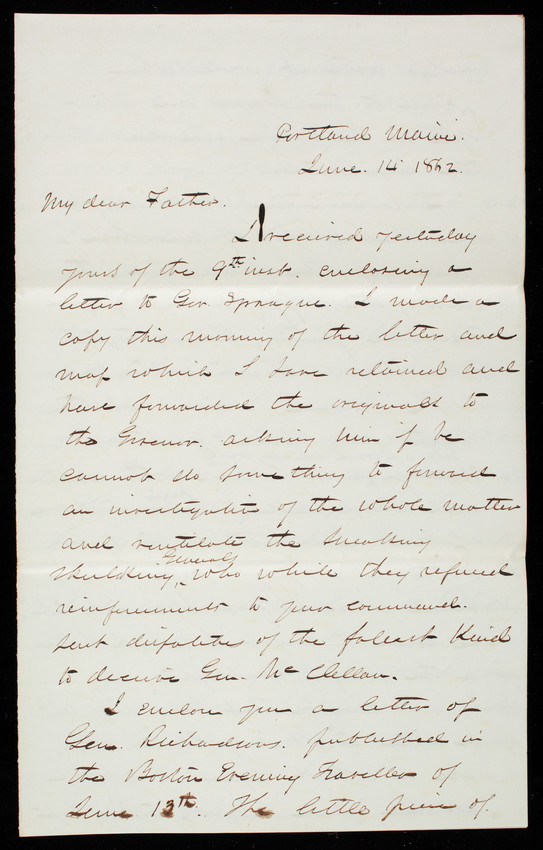 Portland Maine.
June. 14 1862.
My dear Father.
I received yesterday
yours of the 9th inst. enclosing a
letter to Gov. Sprague. I made a
copy this morning of the letter and
map which I have retained and
have forwarded the originals to
the Governor. asking him if he
cannot do something to forward
an investigation of the whole matter
and ventilate the sneaking
skulking Generals, who while they refused
reinforcements to your command.
sent dispatches of the falsest kind
to deceive Gen. McClellan.
I enclose you a letter of
Gen. Richardsons. published in
the Boston Evening Traveller of
June 13th. The little piece of.